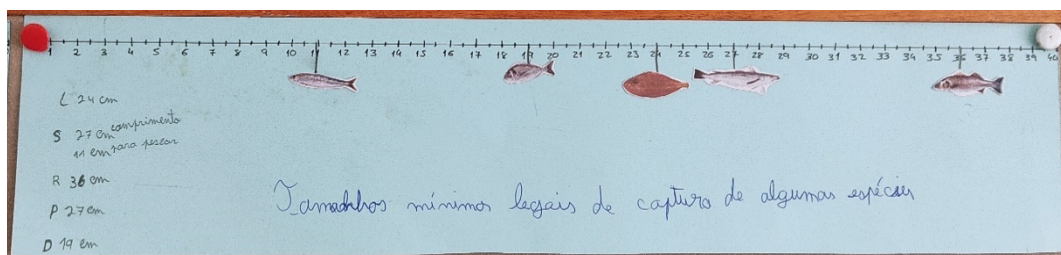 1 2 3 4 5 6 7 8 9 10 11 12 13 14 15 16 17 18 19 20 21 22 23 24 25 26 27 28 29 30 31 32 33 34 35 36 37 38 39 40
L 24 cm
S 27 cm comprimento
11 cm para pescar
R 36 cm
P 27 cm
D 19 cm
Tamanhos mínimos legais de captura de algumas espécies